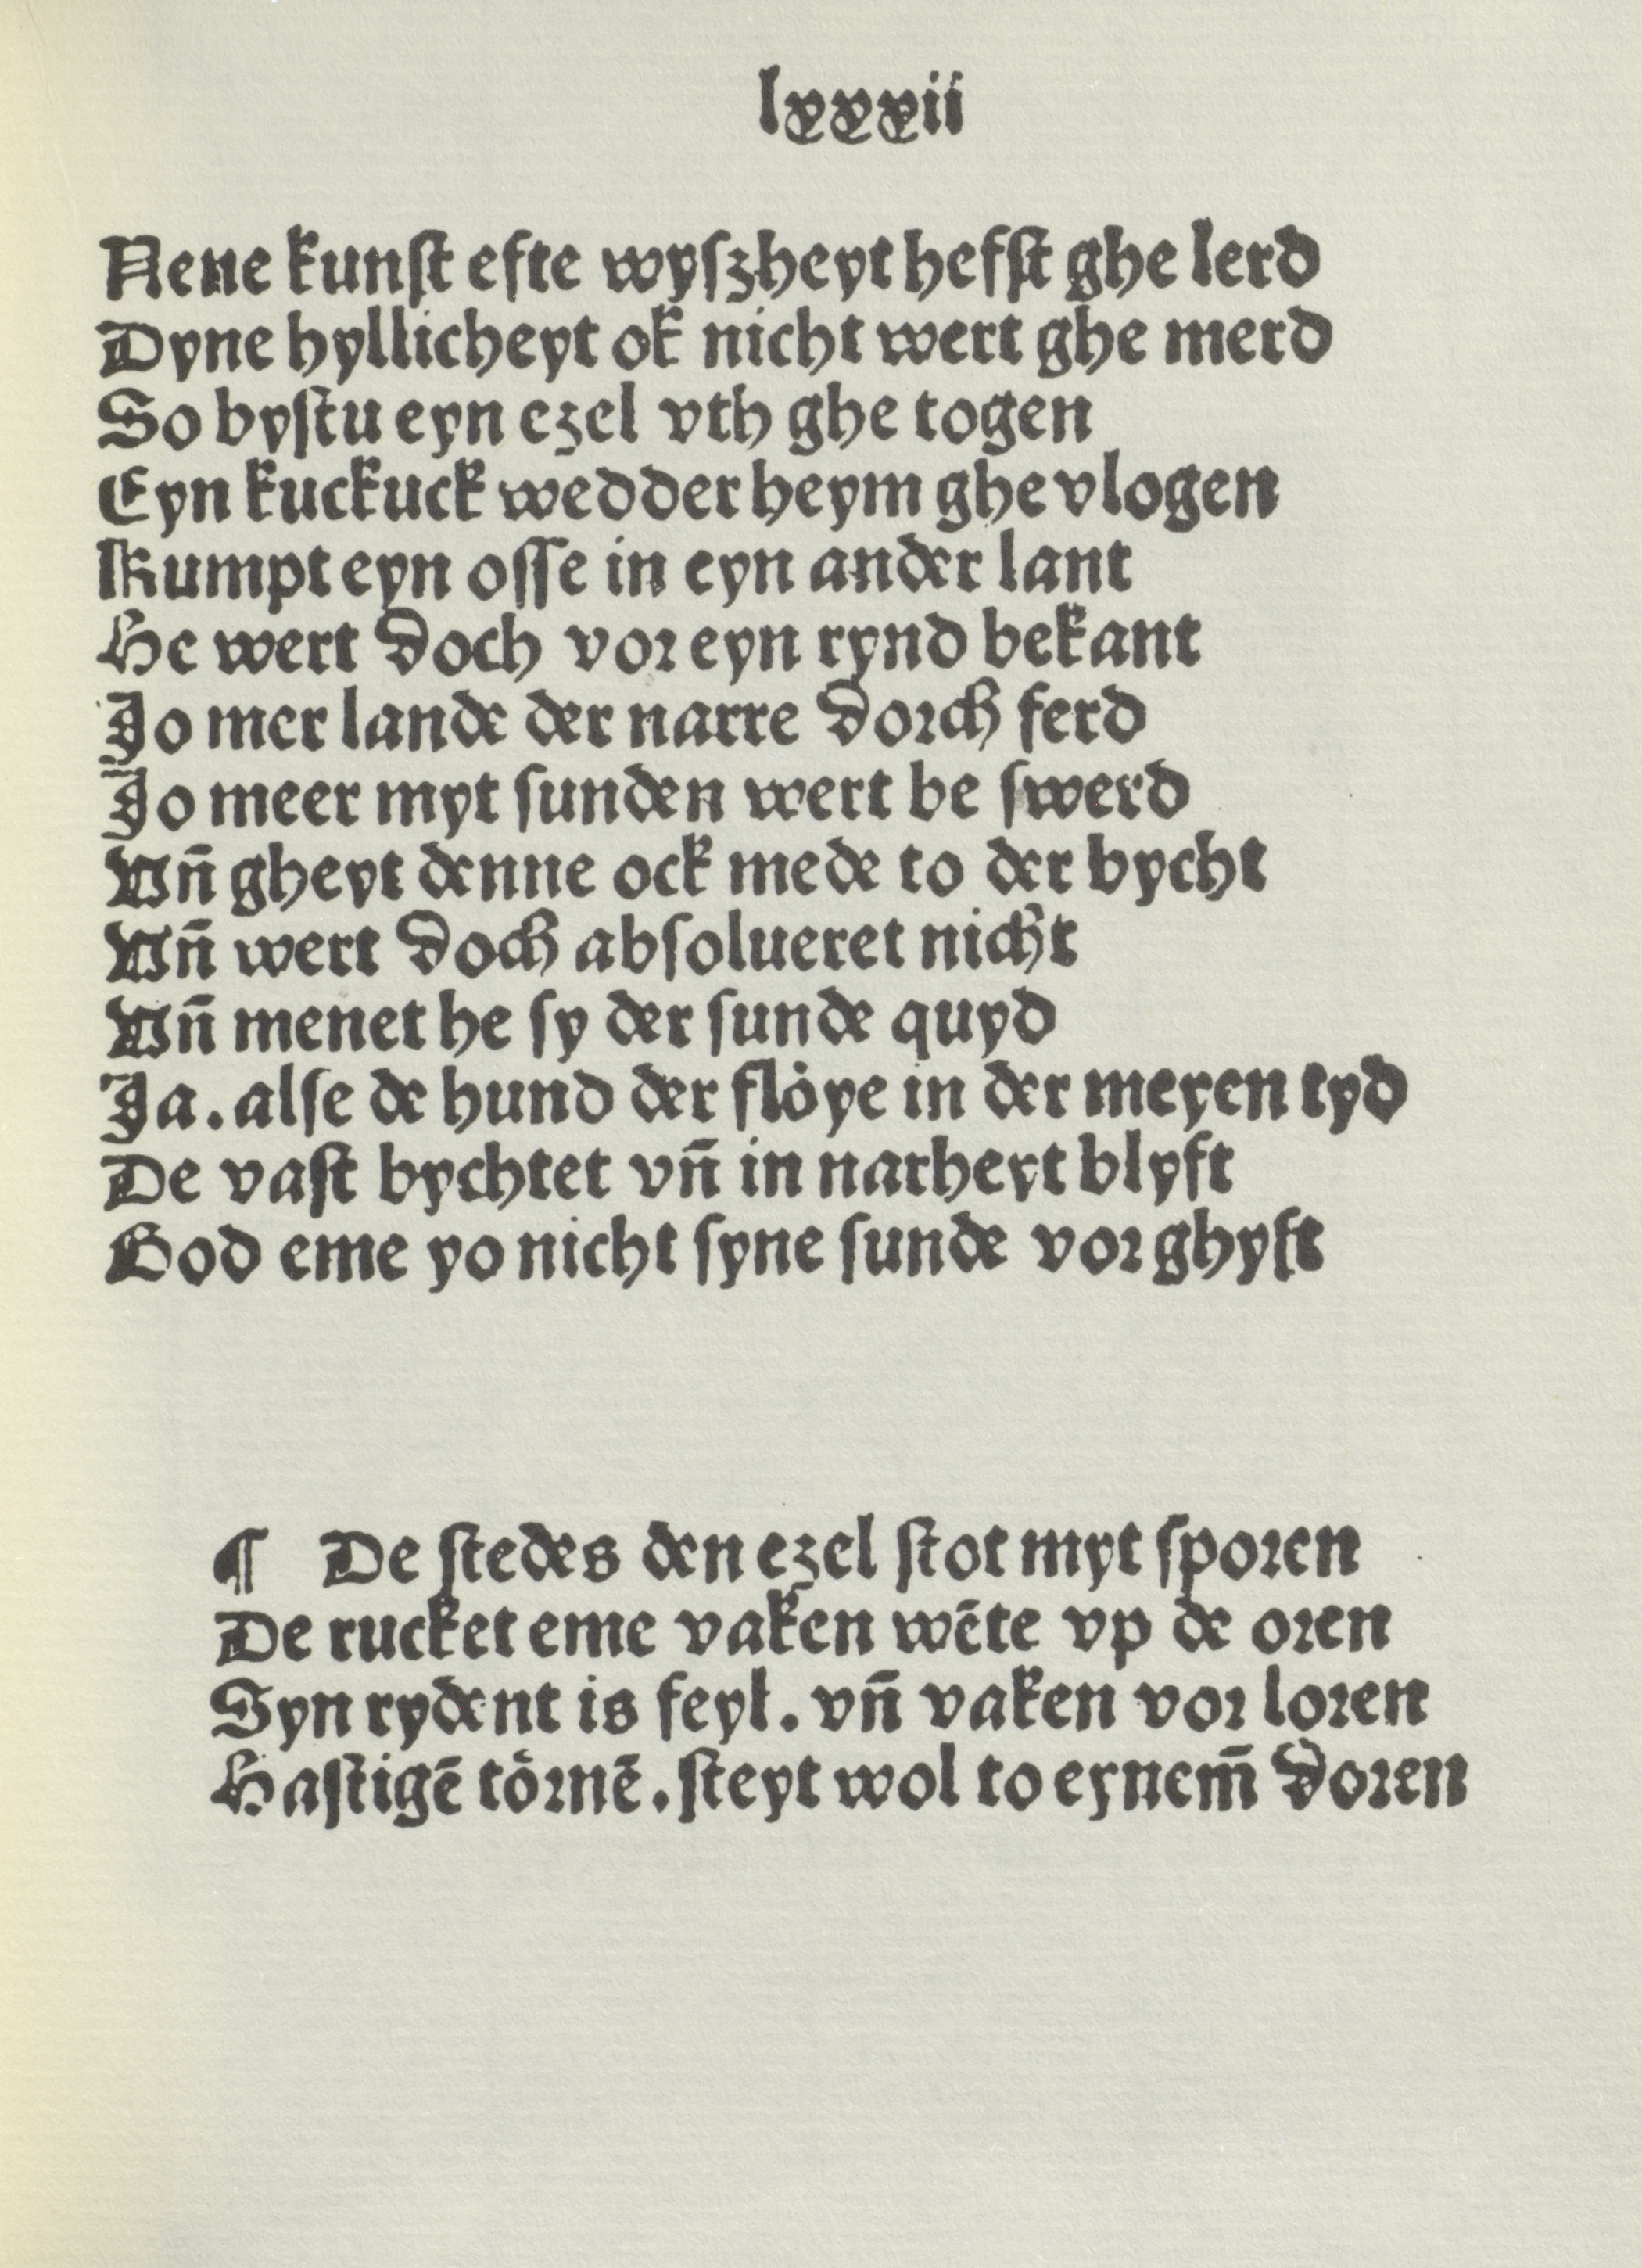 lxxxii
Nene kunſt efte wyſzheyt hefſt ghe lerd
Dyne hyllicheyt ok nicht wert ghe merd
So byſtu eyn ezel vth ghe togen
Eyn kuckuck wedder heym ghe vlogen
Kumpt eyn oſſe in eyn ander lant
He wert doch vor eyn rynd bekant
Jo mer lande der narre dorch ferd
Jo meer myt ſunden wert be ſwerd
Vn̄ gheyt denne ock mede to der bycht
Vn̄ wert doch abſolueret nicht
Vn̄ menet he ſy der ſunde quyd
Ja. alſe de hund der flȯye in der meyen tyd
De vaſt bychtet vn̄ in narheyt blyft
God eme yo nicht ſyne ſunde vor ghyft
¶ De ſtedes den ezel ſtot myt ſporen
De rucket eme vaken wēte vp de oren
Syn rydent is feyl. vn̄ vaken vor loren
Haſtigē tȯrnē. ſteyt wol to eynem̄ doren